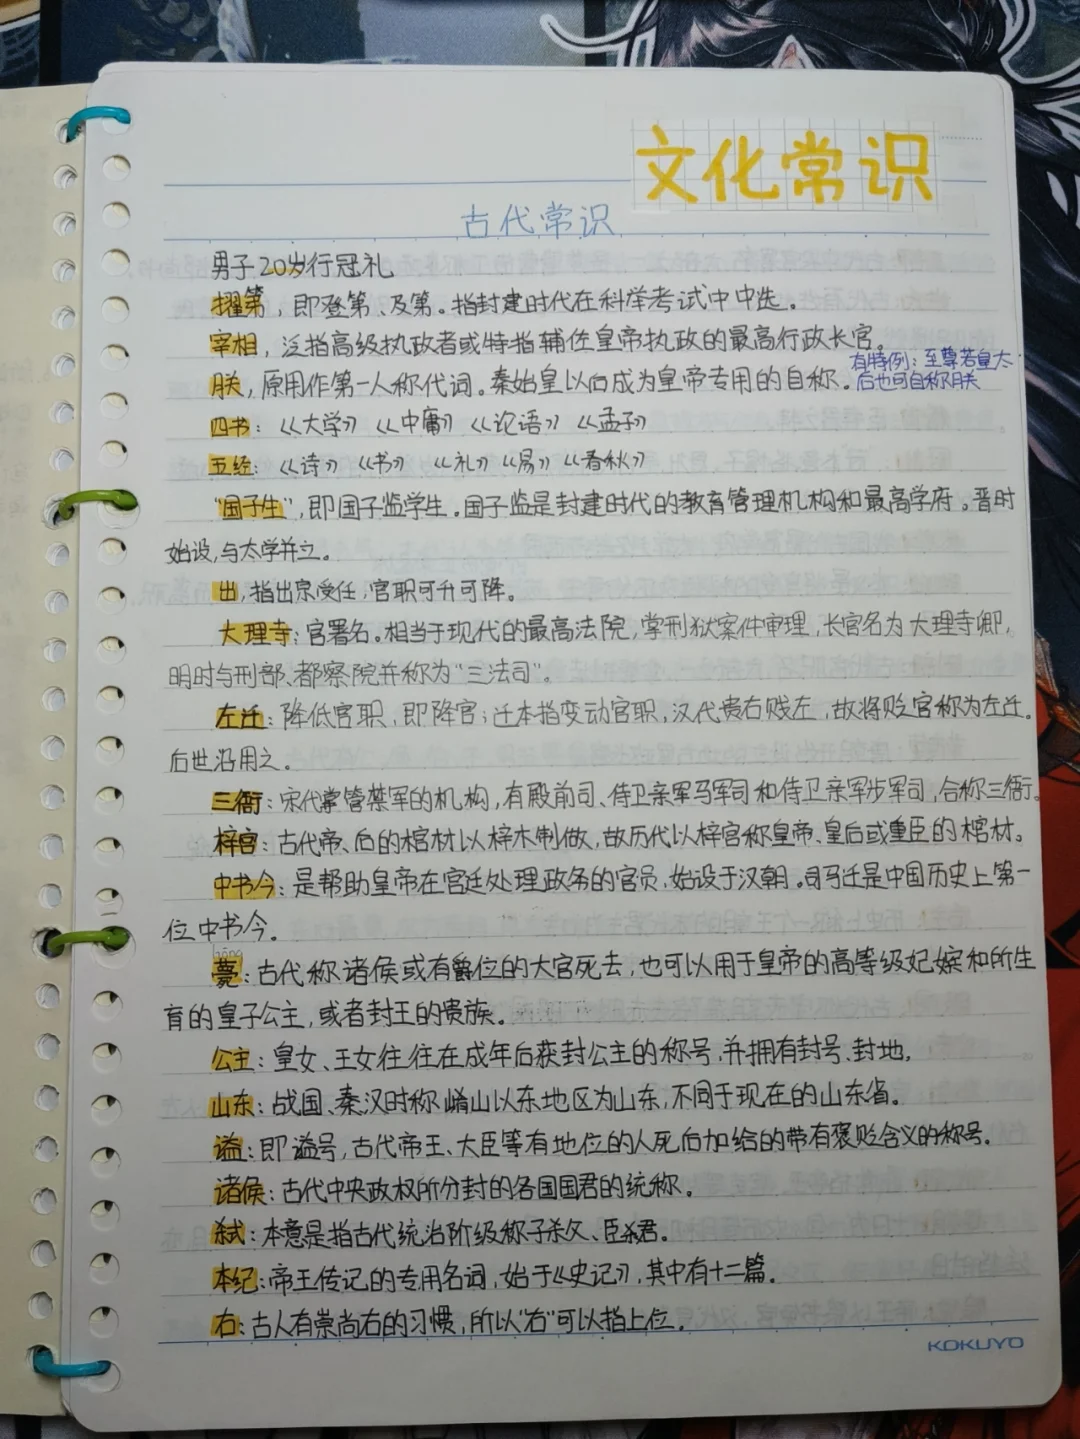 文化常识
古代常识
男子20岁行冠礼
擢第，即登第、及第。指封建时代在科举考试中中选。
宰相，泛指高级执政者或特指辅佐皇帝执政的最高行政长官。
朕，原用作第一人称代词。秦始皇以后成为皇帝专用的自称。
有特例：至尊若皇太
后也可自称朕
四书：《大学》《中庸》《论语》《孟子》
五经：《诗》《书》《礼》《易》《春秋》
“国子生”，即国子监学生。国子监是封建时代的教育管理机构和最高学府。晋时
始设，与太学并立。
出，指出京受任，官职可升可降。
大理寺：官署名。相当于现代的最高法院，掌刑狱案件审理，长官名为大理寺卿，
明时与刑部、都察院并称为“三法司”。
左迁：降低官职，即降官；迁本指变动官职，汉代贵右贱左，故将贬官称为左迁。
后世沿用之。
三衙：宋代掌管禁军的机构，有殿前司、侍卫亲军马军司和侍卫亲军步军司，合称三衙。
梓宫：古代帝、后的棺材以梓木制做，故历代以梓宫称皇帝、皇后或重臣的棺材。
中书令：是帮助皇帝在宫廷处理政务的官员，始设于汉朝。司马迁是中国历史上第一
位中书令。
hōng
薨：古代称诸侯或有爵位的大官死去，也可以用于皇帝的高等级妃嫔和所生
育的皇子公主，或者封王的贵族。
公主：皇女、王女往往在成年后获封公主的称号，并拥有封号、封地，
山东：战国、秦、汉时称崤山以东地区为山东，不同于现在的山东省。
谥：即谥号，古代帝王、大臣等有地位的人死后加给的带有褒贬含义的称号。
诸侯：古代中央政权所分封的各国国君的统称。
弑：本意是指古代统治阶级称子杀父、臣杀君。
本纪：帝王传记的专用名词，始于《史记》，其中有十二篇。
右：古人有崇尚右的习惯，所以“右”可以指上位。
KOKUYO